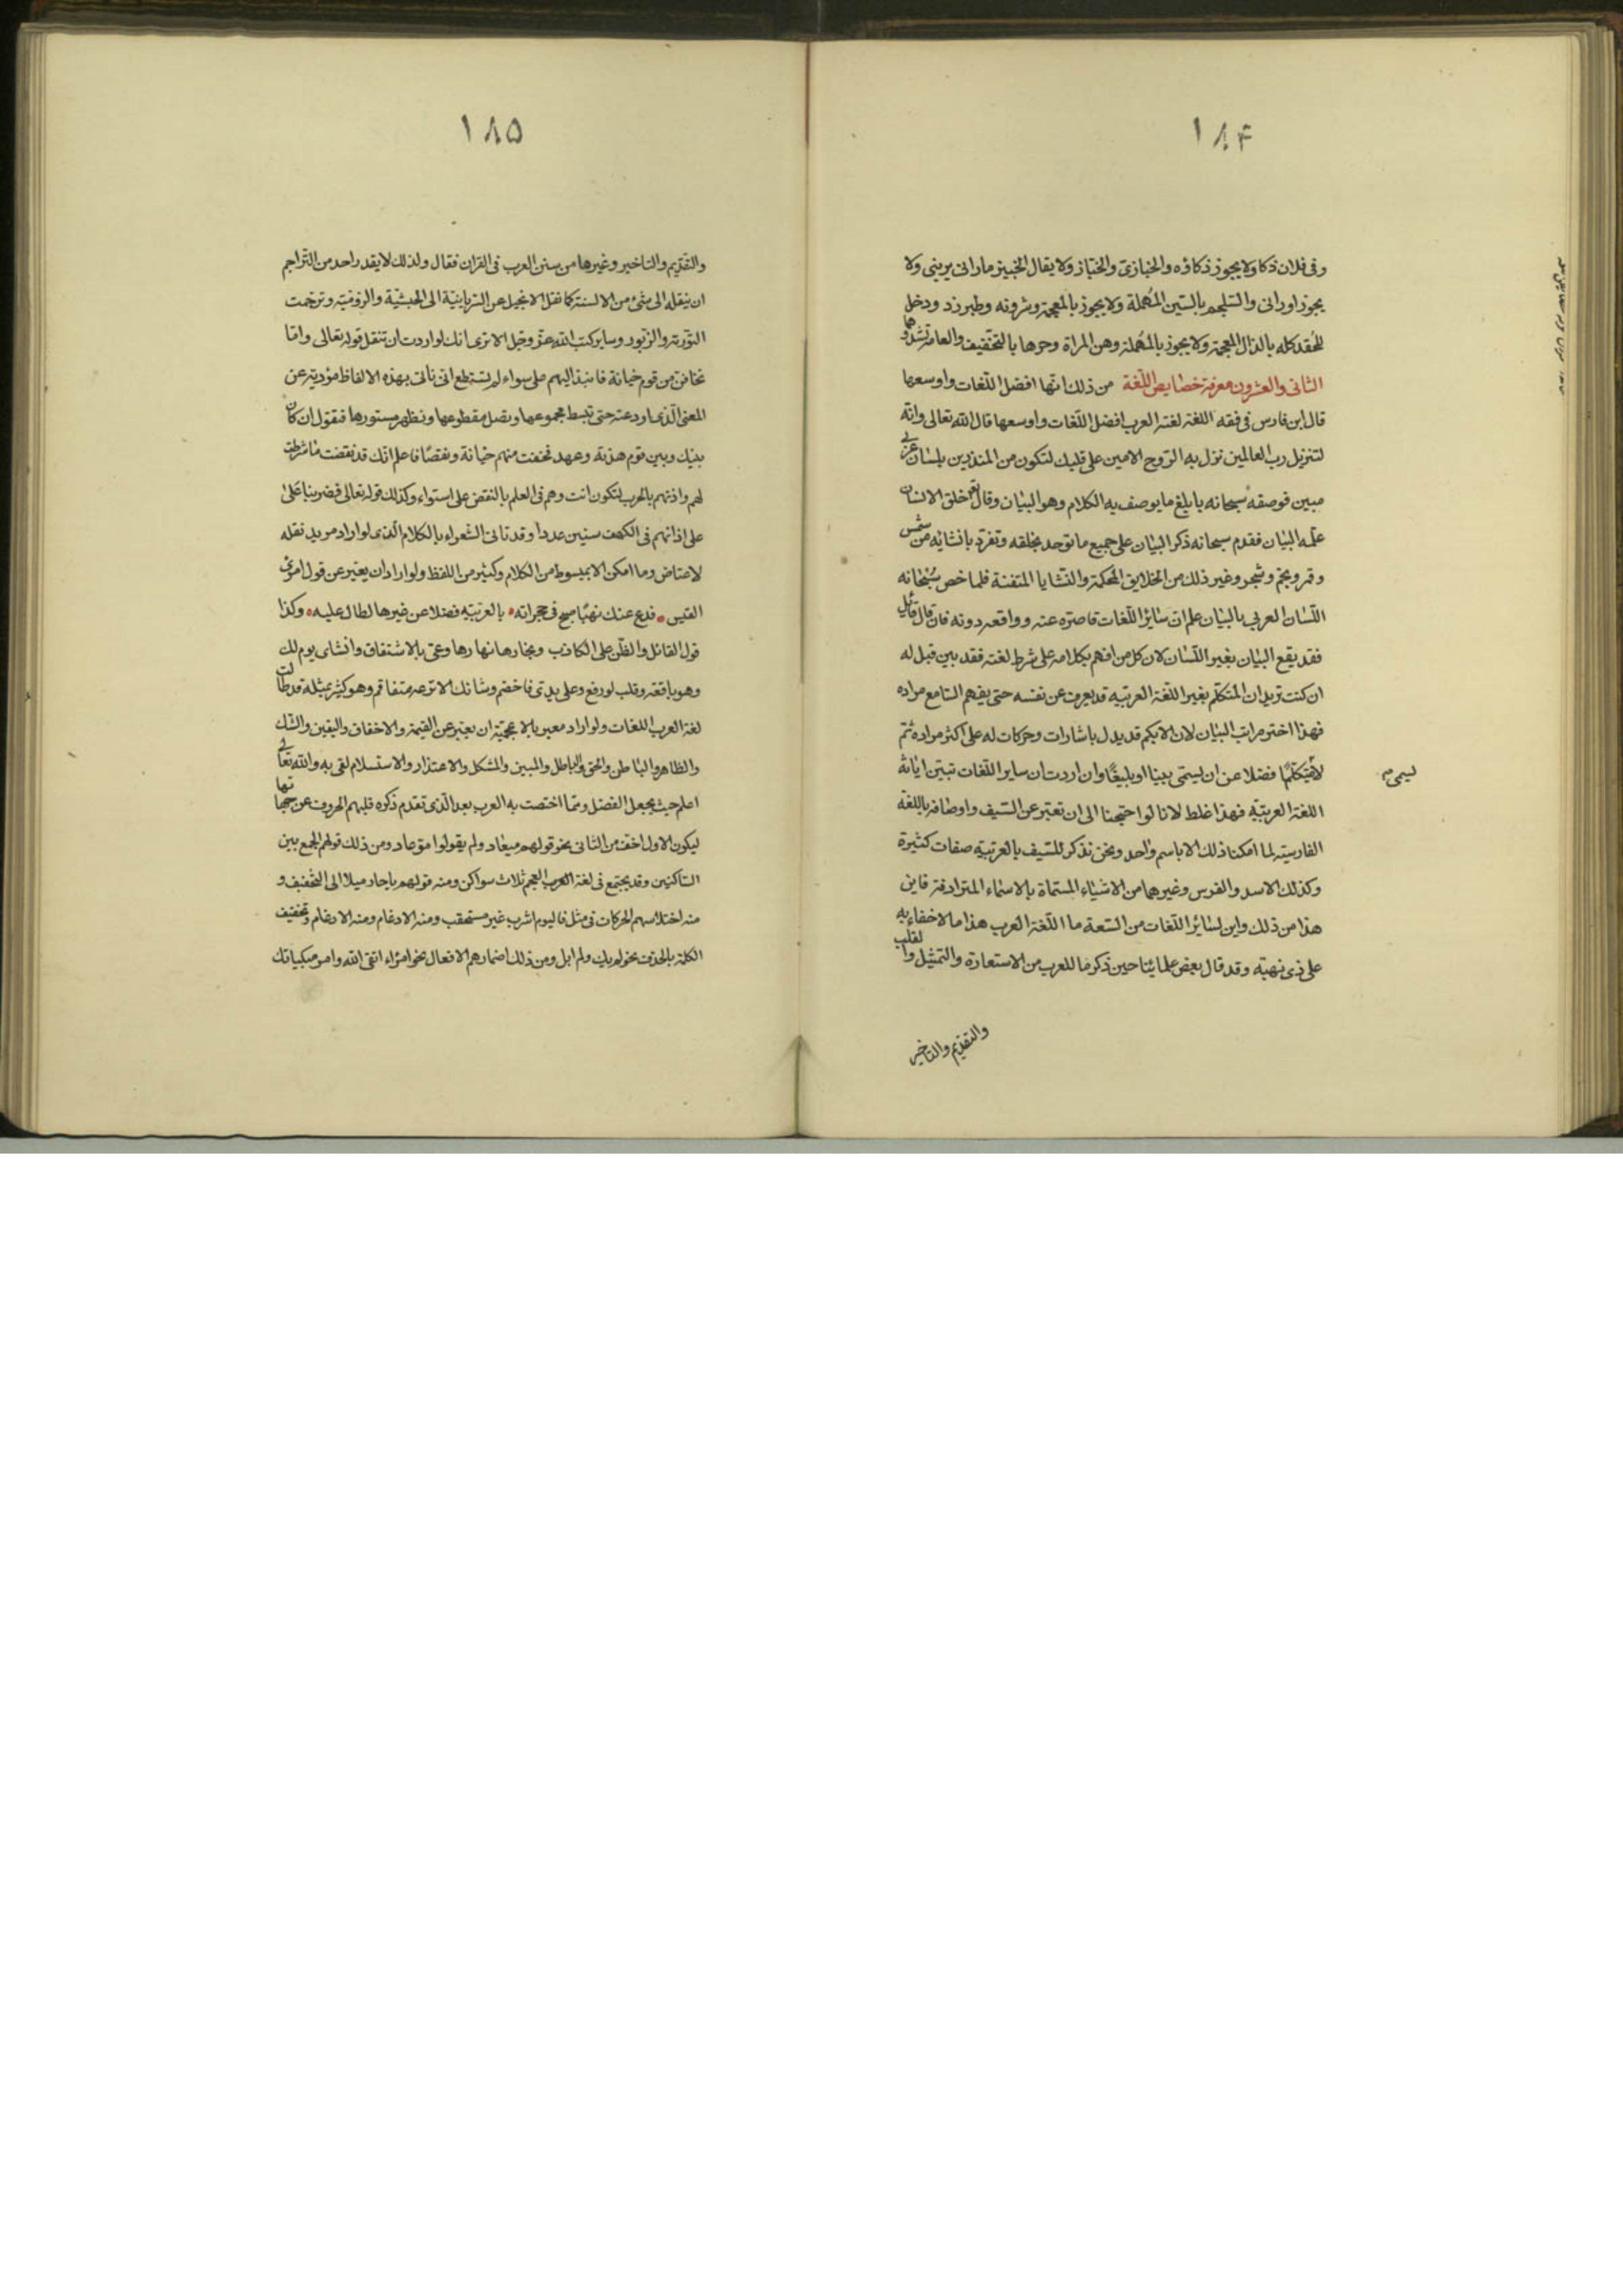 ١٨۴
وفى فلان ذكا ولا يجوز ذكاؤه والخبازى والخباز ولا يقال الخبيز ما رانى يرينى ولا
يجوز اورانى والسلجم بالسين المهملة ولا يجوز بالمعجمة وشرونه وطبرزد ودخل
للحقد كله بالذال المعجمة ولا يجوز بالمهملة وهن المراة وحرها بالتخفيف والعامة تشددهما
الثانى والعشرون معرفة خصايص اللغة من ذلك انها افضل اللغات واوسعها
قال ابن فارس فى فقه اللغة لغة العرب افضل اللغات واوسعها قال الله تعالى وانه
لتنزيل رب العالمين نزل به الروح الامين على قلبك لتكون من المنذرين بلسان عربى
مبين فوصفه سبحانه بابلغ ما يوصف به الكلام وهو البيان وقال تعالى خلق الانسان
علمه البيان فقدم سبحانه ذكر البيان على جميع ما توحد بخلقه وتفرد بانشائه من شمس
وقمر ونجم وشجر وغير ذلك من الخلايق المحكمة والنشايا المتقنة فلما خص سبحانه
اللسان العربى بالبيان علم ان سائر اللغات قاصرة عنه وواقعه دونه فان قال قايل
فقد يقع البيان بغير اللسان لان كل من افهم بكلامه على شرط لغته فقد بين قبل له
ان كنت تريد ان المتكلم بغير اللغة العربيه قد يعرف عن نفسه حتى يفهم السامع مراده
فهذا اختر مراتب البيان لان الابكم قد يدل باشارات وحركات له على اكثر مراده ثم
لا متكلما فضلا عن ان يسمى بينا او بليغا وان اردت ان ساير اللغات تبين ابانة
يسمى
اللغة العربيه فهذا غلط لانا لو احتجنا الى ان تعبر عن السيف واوصافه باللغة
الفارسيه لما امكنا ذلك الا باسم واحد ونحن نذكر للسيف بالعربيه صفات كثيرة
وكذلك الاسد والفرس وغيرهما من الاشياء المسماة بالاسماء المترادفة فاين
هذا من ذلك واين لسائر اللغات من السعة ما اللغة العرب هذا ما لا خفاء به
على ذى نهية وقد قال بعض علمايئا حين ذكر ما للعرب من الاستعارة والتمثيل والقلب
والتقديم والتاخير
١٨۵
والتقديم والتاخير وغيرها من سنن العرب فى القران فقال ولذلك لا يقدر احد من التراجم
ان ينقله الى شئ من الالسنة كما نقل الانجيل عن السريانية الى الحبشية والرومية وترجمت
التورية والزبور وساير كتب الله عز وجل الا ترى انك لو اردت ان تنقل قوله تعالى واما
تخافن من قوم خيانة فانبذ اليهم على سواء لم تستطع ان تاتى بهذه الالفاظ مؤدية عن
المعنى الذى اودعته حتى تبسط مجموعها وتصل مقطوعها وتظهر مستورها فتقول ان كان
بينك وبين قوم هدنة وعهد فخفت منهم خيانة ونقضا فاعلم انك قد نقضت ما شرطت
لهم واذنهم بالحرب لتكون انت وهم فى العلم بالنقض على استواء وكذلك قوله تعالى فضربنا على
على اذانهم فى الكهف سنين عددا وقد تاتى الشعراء بالكلام الذى لو اراد مريد نقله
لاعتاض وما امكن الا بمبسوط من الكلام وكثير من اللفظ ولو اراد ان يعبر عن قول امرئ
القيس فدع عنك نهبا صيح فى حجراته بالعربيه فضلا عن غيرها لطال عليه وكذا
قول القائل والظن على الكاذب ونجارها نارها وعى بالاسنفاق وانشاى يوم لك
وهو باقعة وقلب لو رفع وعلى يدى فاخضم وشانك الا تركه متفاقم وهو كثير بمثله قد طالت
لغة العرب اللغات ولو اراد معبر بالاعجمية ان يعبر عن الغنيمة والاخفاق واليقين والشك
والظاهر والباطن والحق والباطل والمبين والمشكل والاعتزاز والاستسلام لعى به والله تعالى
اعلم حيث يجعل الفضل ومما اختصت به العرب بعد الذى تقدم ذكره قلبهم الحروف عن جهاتها
ليكون الاول اخف من الثانى نحو قولهم ميعاد ولم يقولوا موعاد ومن ذلك تركهم الجمع بين
الساكنين وقد يجتمع فى لغة العجم ثلاث سواكن ومنه قولهم يا حار ميلا الى التخفيف و
منه اختلاسهم الحركات فى مثل فاليوم اشرب غير مستحقب ومنه الادغام ومنه الادغام وتخفيف
الكلمة بالحذف نحو لم يك ولم ابل ومن ذلك اضمارهم الافعال نحو امراء اتقى الله وامر مبكياتك